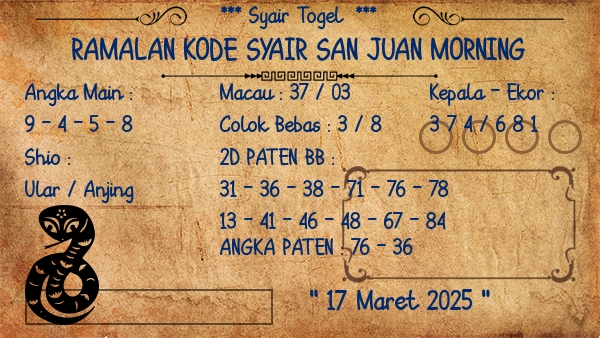 *** Syair Togel ***
RAMALAN KODE SYAIR SAN JUAN MORNING
Angka Main :
9 - 4 - 5 - 8
Shio :
Ular / Anjing
Macau : 37 / 03
Colok Bebas : 3 / 8
2D PATEN BB :
31 - 36 - 38 - 71 - 76 - 78
13 - 41 - 46 - 48 - 67 - 84
ANGKA PATEN : 76 - 36
Kepala - Ekor :
3 7 4 / 6 8 1
" 17 Maret 2025 "